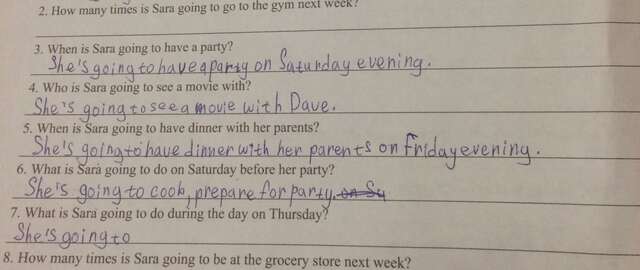 2. How many times is Sara going to go to the gym next week?
3. When is Sara going to have a party?
She's going to have a party on Saturday evening.
4. Who is Sara going to see a movie with?
She's going to see a movie with Dave.
5. When is Sara going to have dinner with her parents?
She's going to have dinner with her parents on Friday evening.
6. What is Sara going to do on Saturday before her party?
She's going to cook, prepare for party. on Su
7. What is Sara going to do during the day on Thursday?
She's going to
8. How many times is Sara going to be at the grocery store next week?